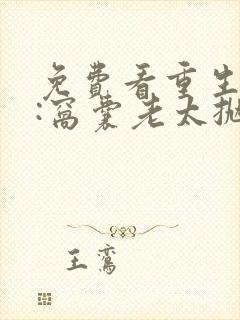 免费看重生
:窝囊老太抛
王鸾